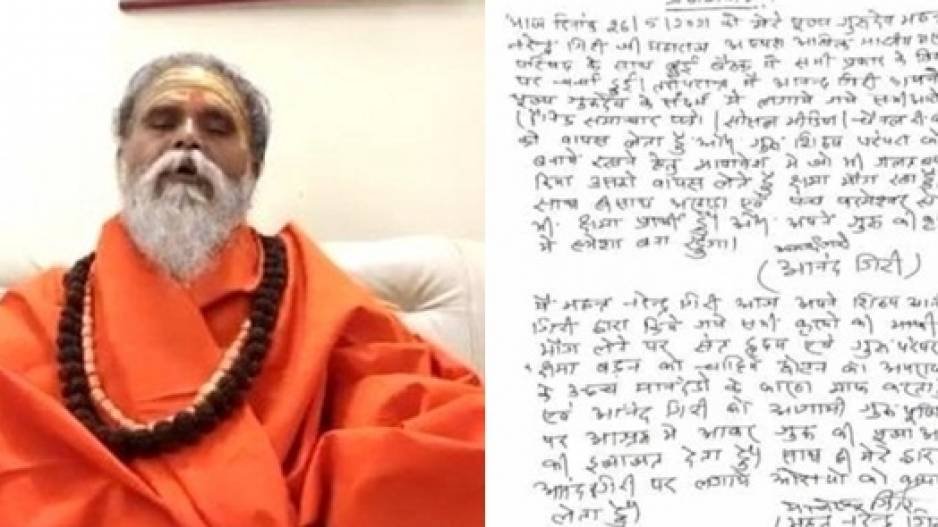 आज दिनांक 26/5/2021 को मेरे पूज्य गुरुदेव महन्त
नरेन्द्र गिरी जी महाराज अध्यक्ष अखिल भारतीय
परिषद के साथ हुई बैठक में सभी प्रकार के
पर चर्चा हुई। तत्पश्चात मैं आनन्द गिरी अपने
पूज्य गुरुदेव के संदर्भ में लगाये गये सभी
समाचार पत्रो / सोसल मीडिया /
को वापस लेता हूँ और गुरु शिष्य परंपरा को
बनाये रखने हेतु में जो भी गलत
दिया उसको वापस लेते क्षमा मांग रहा
साथ ही साथ अखाड़ा एवं पंच परमेश्वर से
भी क्षमा प्रार्थी हूँ। और अपने गुरु की
में हमेशा बना रहूँगा।
(आनंद गिरी)
मैं महन्त नरेन्द्र गिरी आज अपने शिष्य
गिरी द्वारा किये गये सभी कृत्यो की माफी
माँग लेने पर संत हृदय एवं गुरु
क्षमा बड़न को चाहिये छोटन को
के उच्च मापदंडो के कारण माफ करता
एवं आनंद गिरी को आगामी गुरु
पर आश्रम में आकर गुरु की पूजा
की इजाजत देता हूँ। साथ ही मेरे द्वारा
आनंद गिरी पर लगाये आरोपो को
लेता हूँ।
नरेन्द्र गिरि